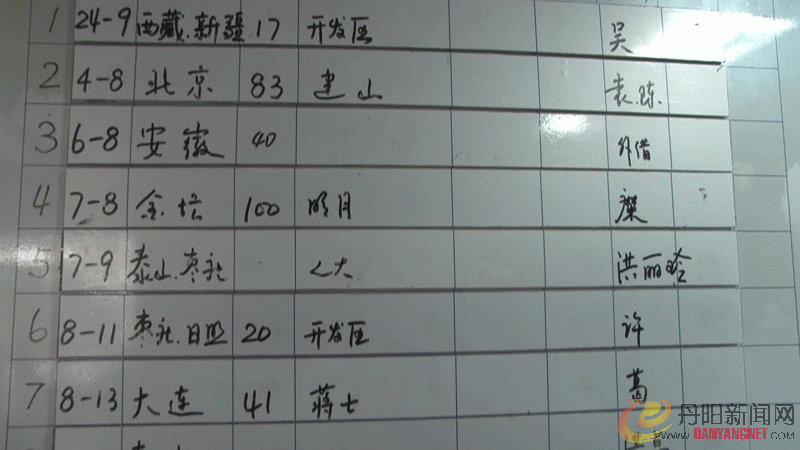 1 24-9 西藏.新疆 17 开发区 吴
2 4-8 北京 83 建山 袁.陈
3 6-8 安徽 40 外借
4 7-8 金坛 100 明月 糜
5 7-9 泰山.枣庄 大 洪丽玲
6 8-11 枣庄.日照 20 开发区 许
7 8-13 大连 41 蒋士 葛
丹阳新闻网
DANYANGNET.COM